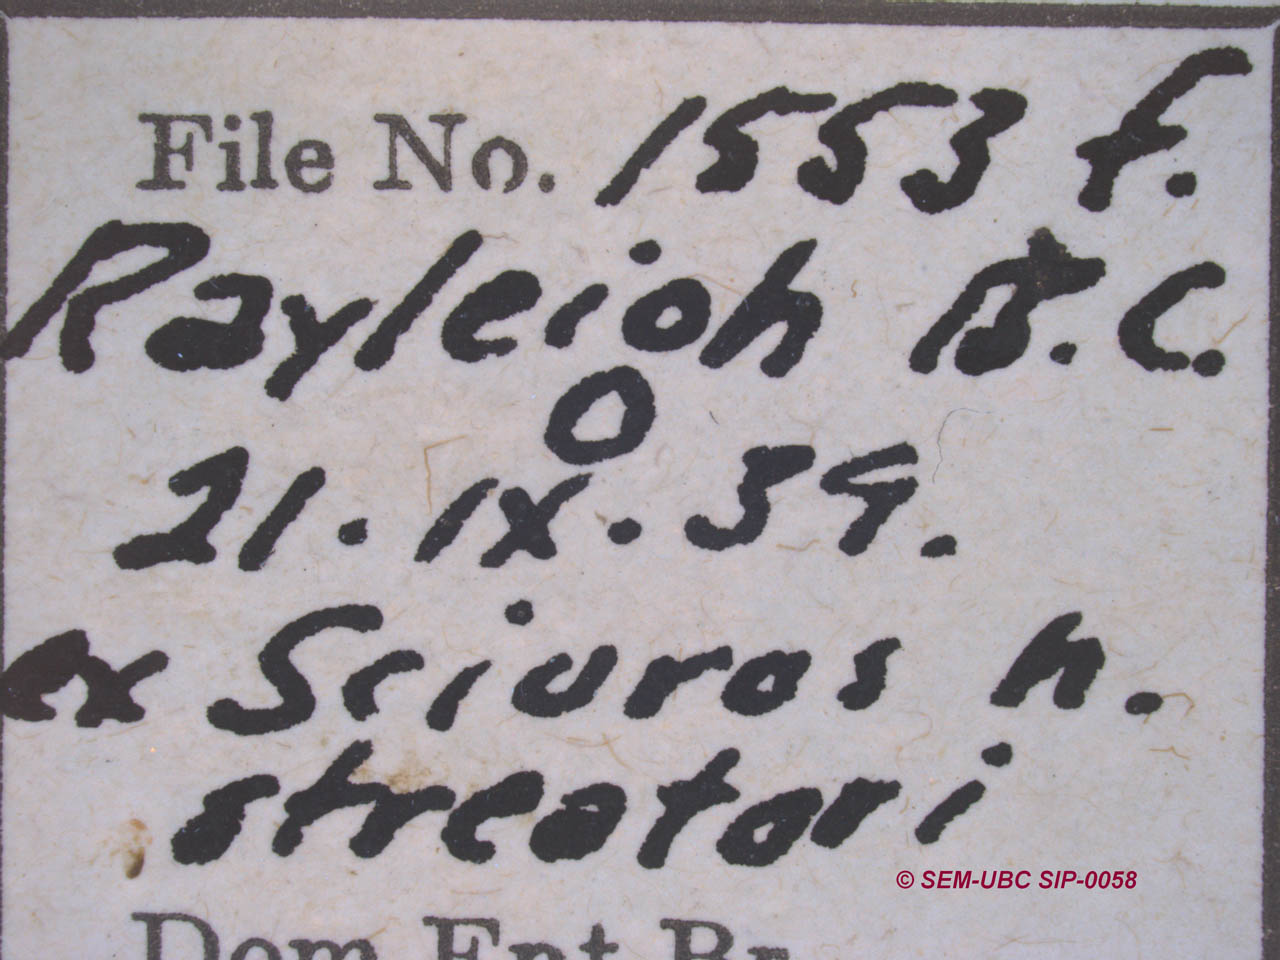 File No. 1553 f.
Rayleigh B.C.
21.IX.39.
ex Sciuros h.
streatori
© SEM-UBC SIP-0058
Dom. Ent. Br.